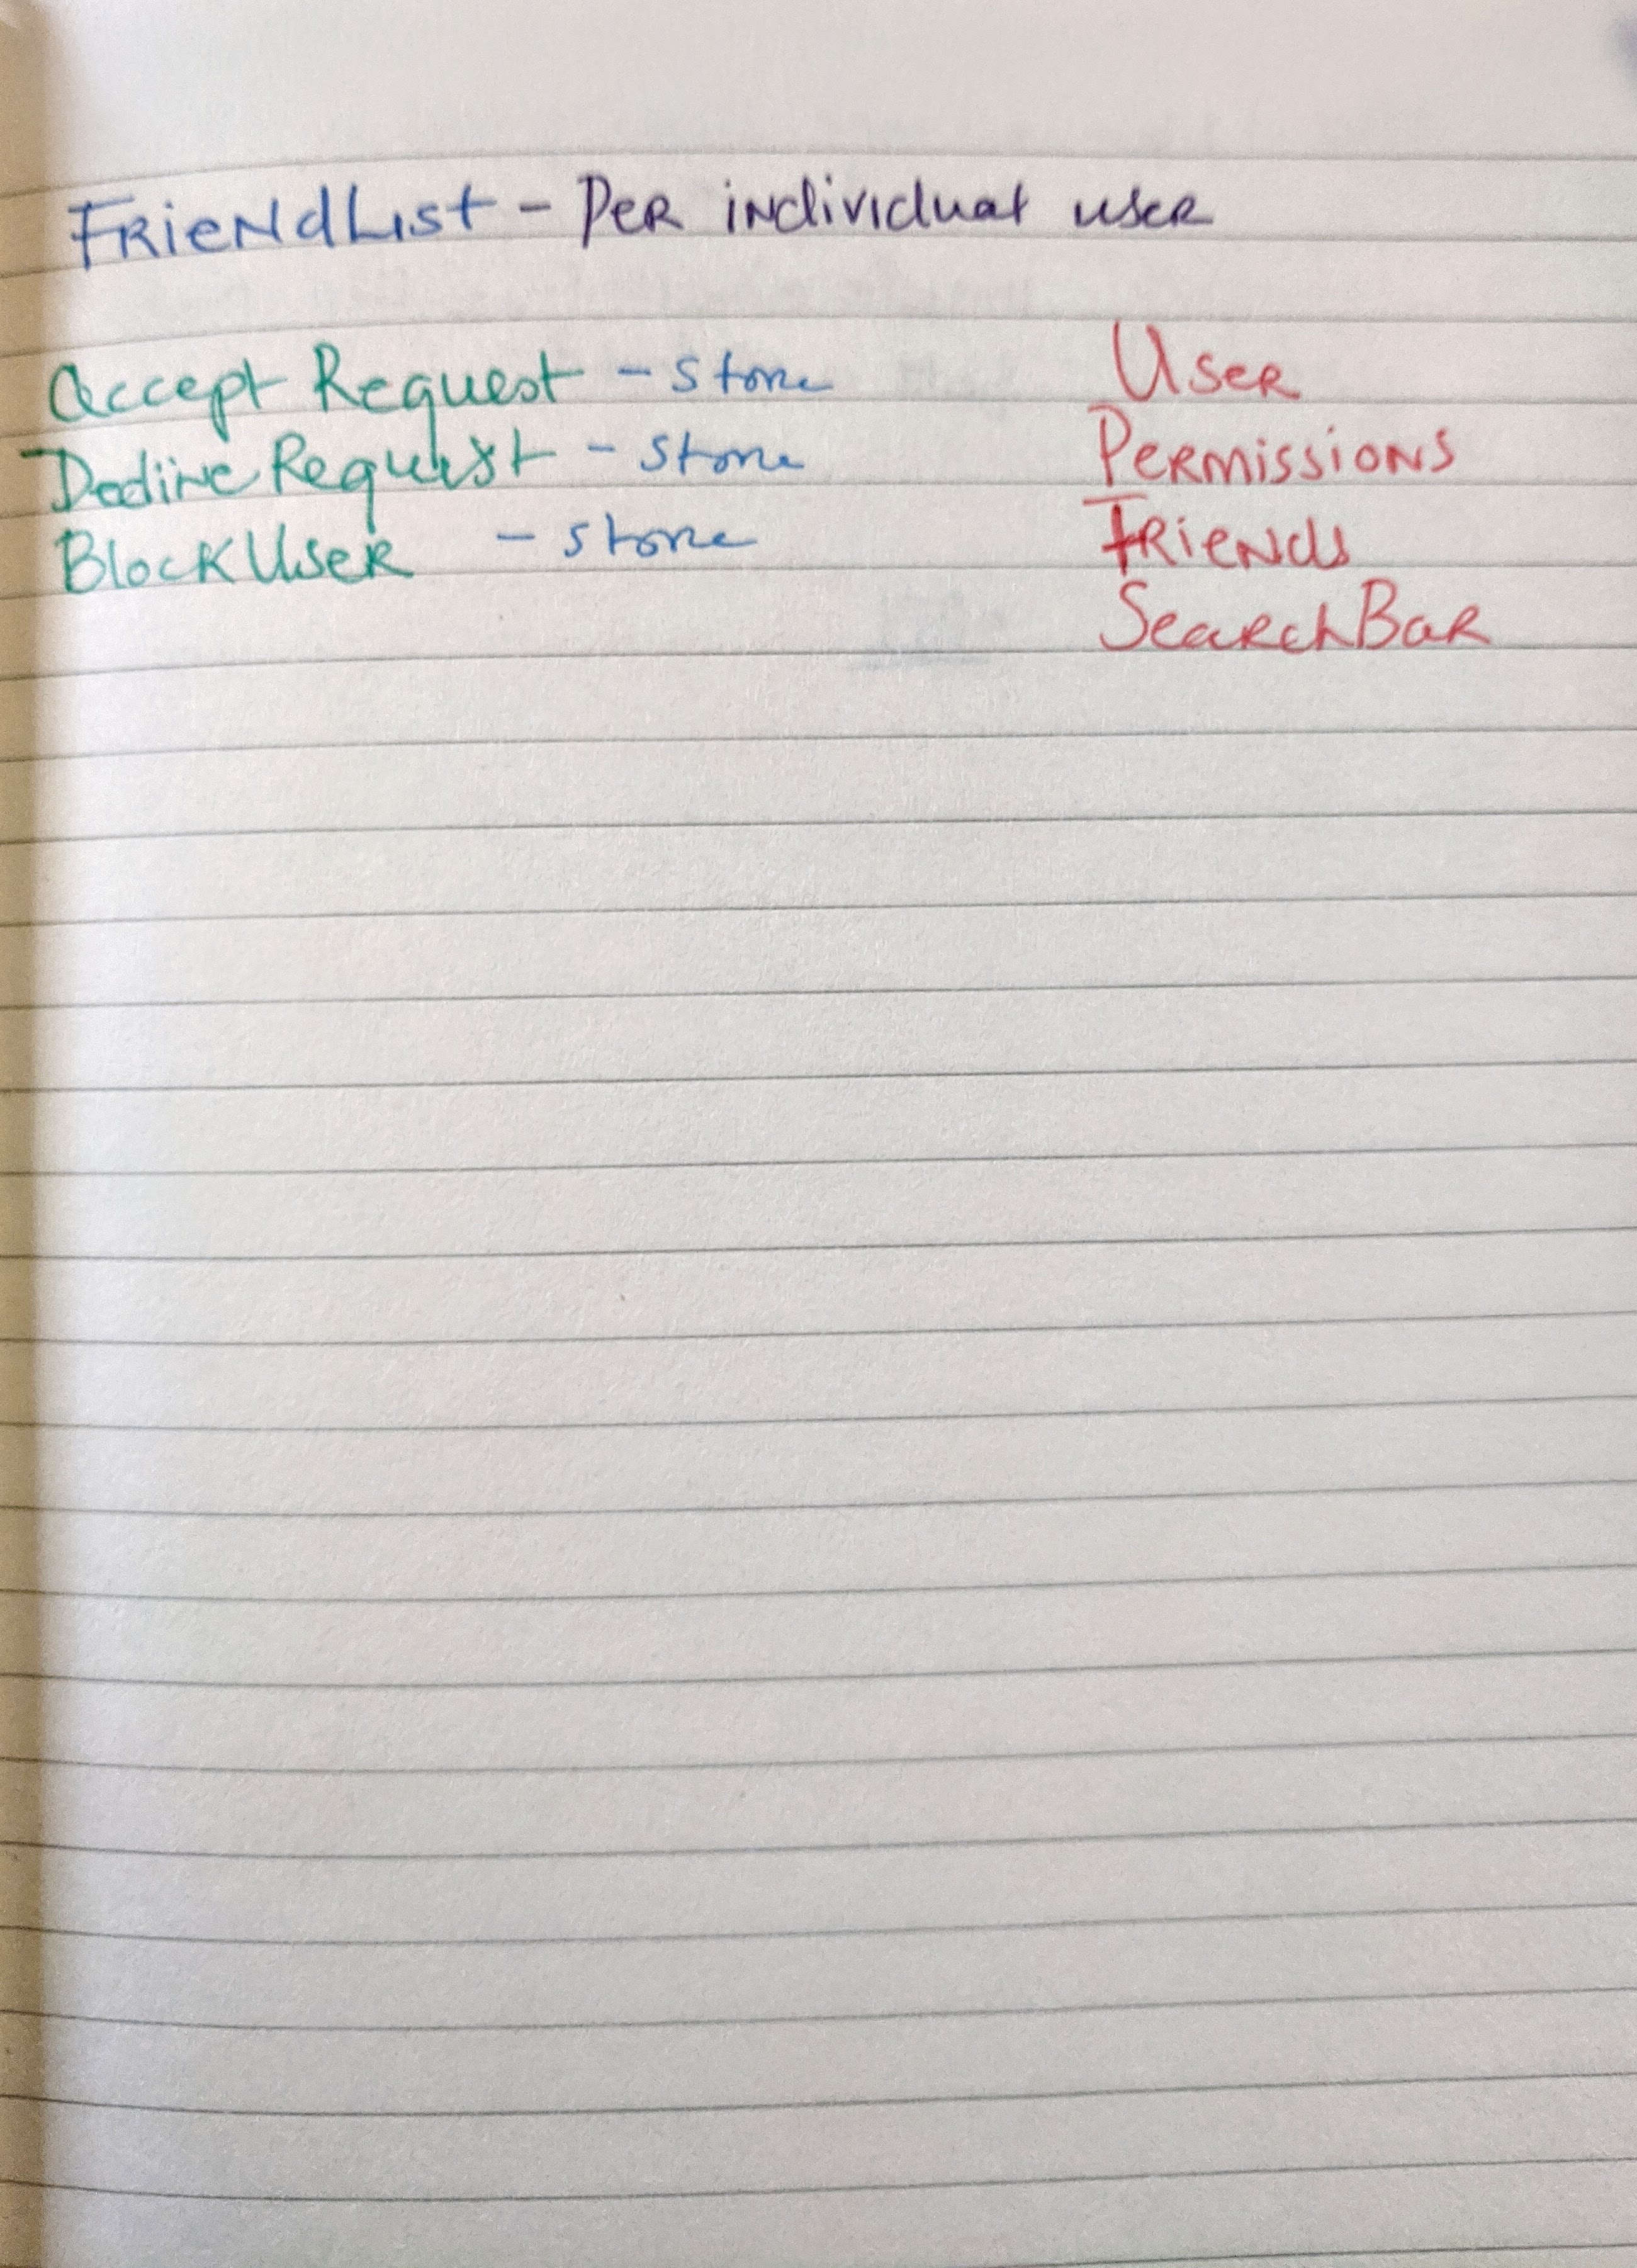 FriendList - Per individual user
Accept Request - store
Decline Request - store
Block User - store
User
Permissions
Friends
SearchBar